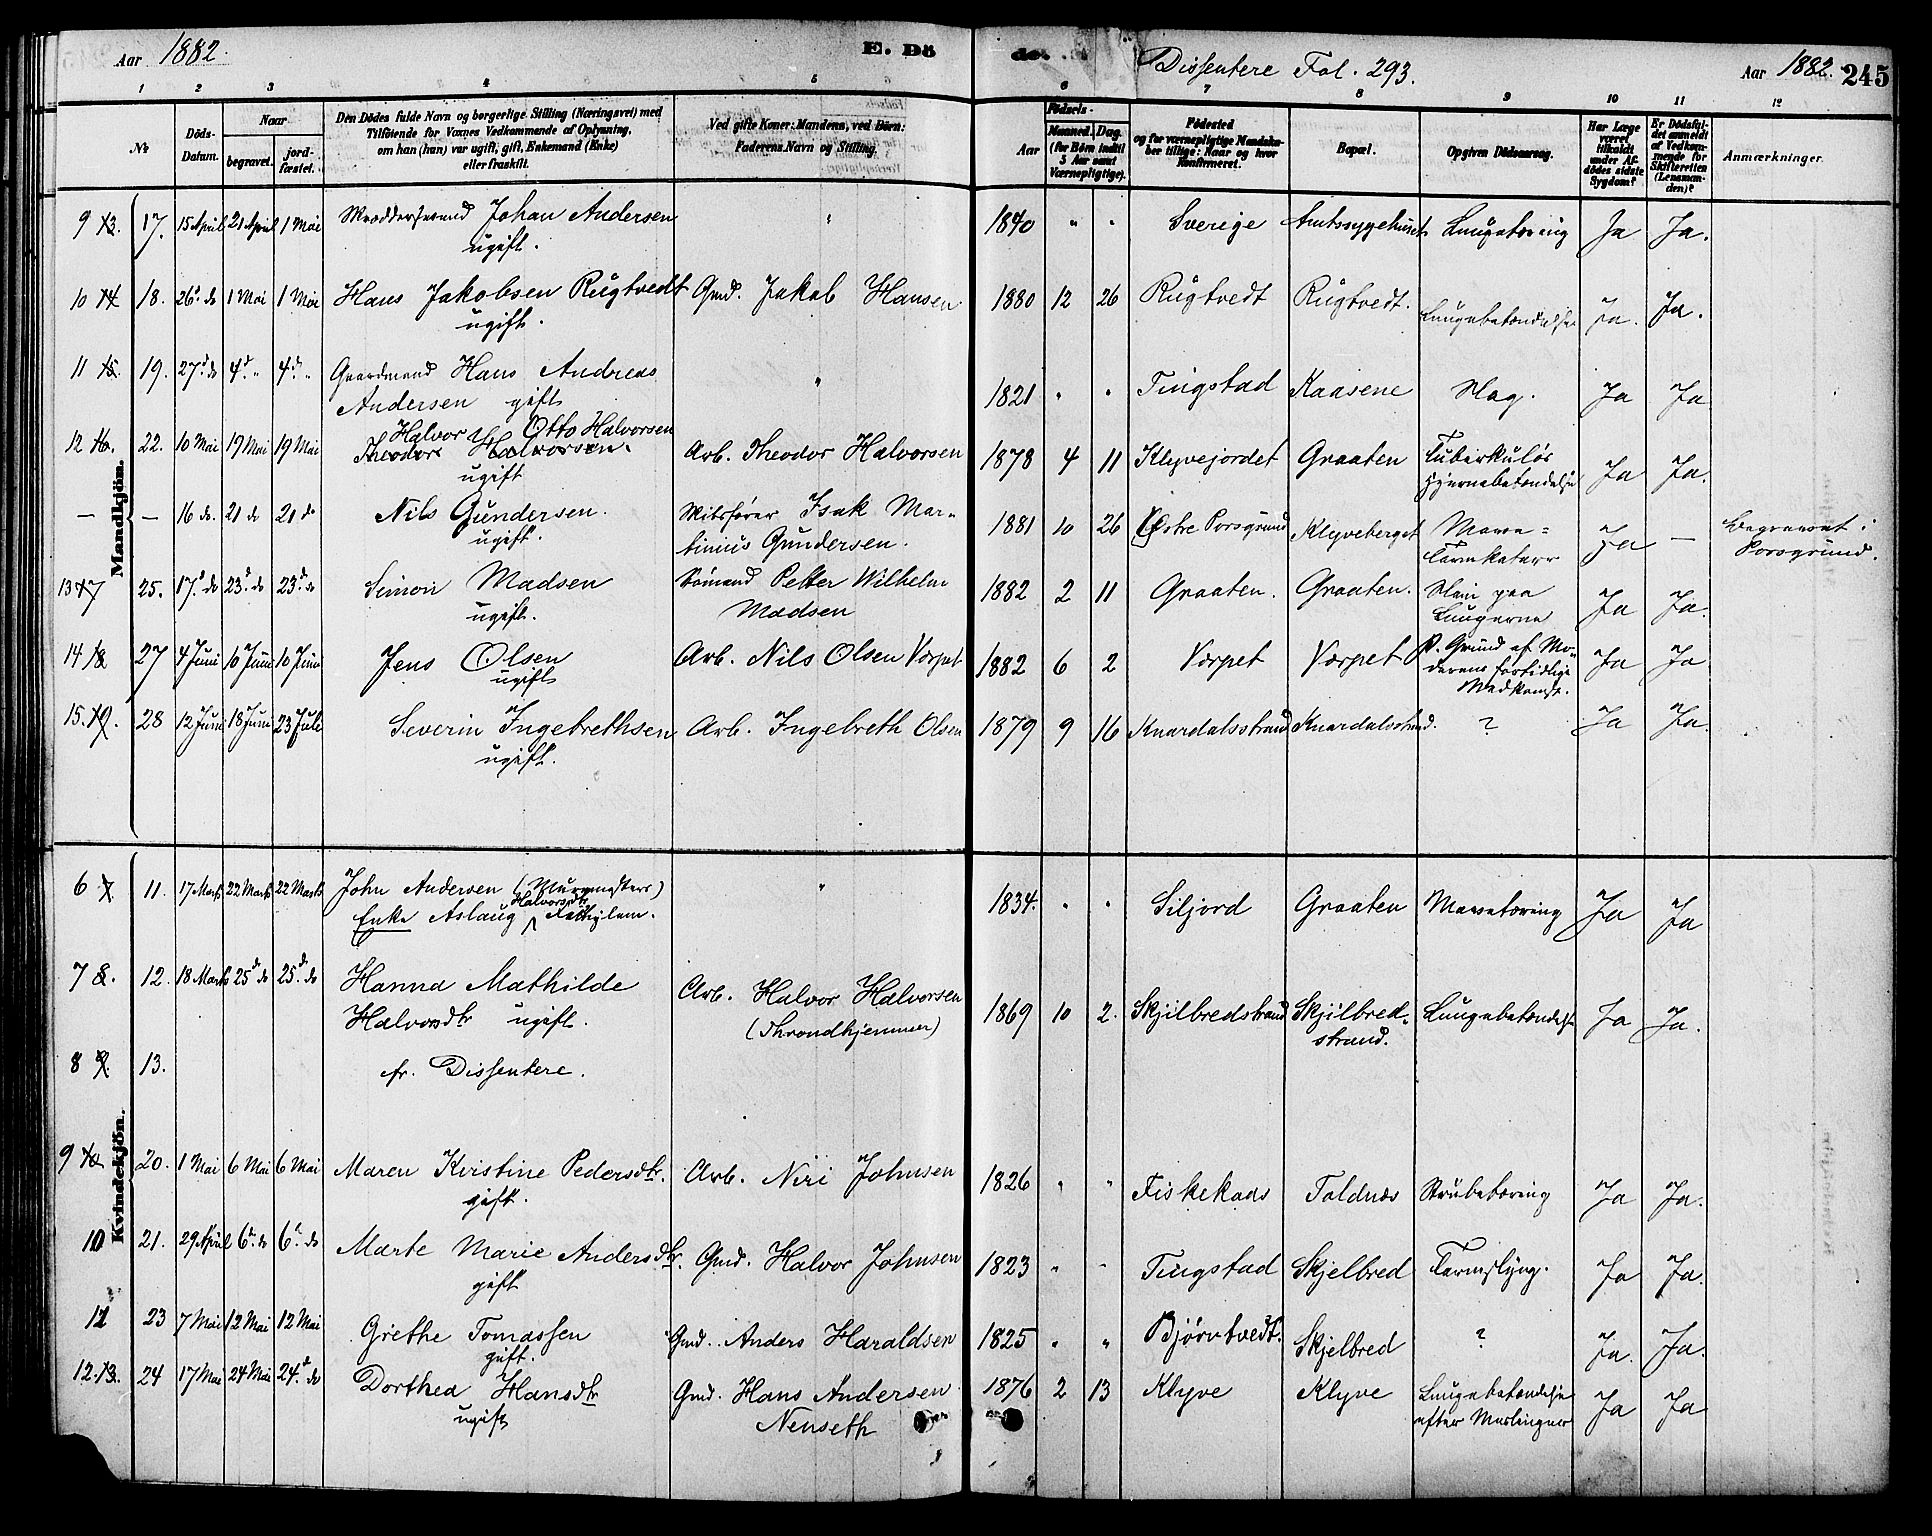 Aar 1882. E. Dö
de. Dissentere Fol. 293. Aar 1882. 245
1 2 3 4 5 6 7 8 9 10 11 12
№ Döds-Datum. Naar begravet. jordfæstet. Den Dödes fulde Navn og borgerlige Stilling (Næringsvei) med Tilföiende for Voxnes Vedkommende af Oplysning, om han (hun) var ugift, gift, Enkemand (Enke) eller fraskilt. Ved gifte Koner: Mandens, ved Börn: Faderens Navn og Stilling.
Aar Födsels- Maaned. Dag. (for Börn indtil 5 Aar samt Værnepligtige). Födested og for værnepligtige Mandskaber tillige: Naar og hvor Konfirmeret. Bopæl. Opgiven Dödsaarsag. Har Læge været tilkaldt under Afdödes sidste Sygdom? Er Dödsfaldet anmeldt af Vedkommende for Skifteretten (Lensmanden)? Anmærkninger.
Mandkjön.
9 13. 17. 15 April 21 April 1 Mai Skræddersvend Johan Andersen ugift. " 1840 " " Sverige Amtssygehuset Lungetæring Ja Ja.
10 14 18. 26. do 1 Mai 1 Mai Hans Jakobsen Rugtvedt ugift. Gmd. Jakob Hansen 1880 12 26 Rugtvedt Rugtvedt. Lungebetændelse Ja. Ja.
11 15. 19. 27. do 4. " 4. " Gaardmand Hans Andreas Andersen gift " 1821 " " Tingstad Kaasene Slag. Ja Ja
12 16. 22. 10 Mai 19 Mai 19 Mai Halvor Otto Halvorsen
Theodor Halvorsen. ugift Arb. Theodor Halvorsen 1878 4 11 Klyvejordet Graaten Tuberkuløs Hjernebetændelse Ja Ja.
— — 16 do. 21 do 21 do Nils Gundersen. ugift. Skibsfører Isak Martinius Gundersen. 1881 10 26 Østre Porsgrund Klyveberget Mave= Tarmkatarr Ja — Begravet i Porsgrund.
13 17 25. 17. do 23. do 23. do Simon Madsen ugift. Sømand Petter Wilhelm Madsen 1882 2 11 Graaten. Graaten. Sliim paa Lungerne Ja Ja.
14 18 27 4 Juni 10 Juni 10 Juni Jens Olsen ugift Arb. Nils Olsen Vorpet 1882 6 2 Vorpet Vorpet P. Grund af Moderens fortidlige Nedkomst. Ja Ja.
15. 19. 28 12 Juni 18 Juni 23 Juli Severin Ingebrethsen ugift. Arb. Ingebreth Olsen 1879 9 16 Knardalsstrand Knardalsstrand. ? Ja Ja.
Kvindekjön.
6 7 11. 17 Marts 22 Marts 22 Marts John Andersen (Murmesters)
Enke Aslaug Halvorsdtr " 1834. " " Siljord Graaten Mavetæring Ja Ja
7 8. 12. 18 Marts 25. do 25. do Hanna Mathilde Halvorsdtr ugift. Arb. Halvor Halvorsen (Throndhjemmer) 1869 10 2. Skjilbredstrand Skjilbredstrand. Lungebetændelse Ja Ja.
8 9. 13. fr. Dissentere.
9 10 20. 1 Mai 6 Mai 6 Mai Maren Kristine Pedersdtr. gift. Arb. Niri Johnsen 1826 " " Fiskekaas Toldnæs Strubetæring Ja Ja.
10 21. 29 April 6. do 6. do Marte Marie Andersdtr. gift Gmd. Halvor Johnsen 1823 " " Tingstad Skjelbred Tarmslyng. Ja Ja.
11 23 7 Mai 12 Mai 12 Mai Grethe Tomassen gift. Gmd. Anders Haraldsen 1825 " " Bjørntvedt. Skjelbred ? Ja. Ja.
12. 13. 24 17 Mai 24 Mai 24. do Dorthea Hansdtr ugift Gmd. Hans Andersen Nenseth 1876 2 13 Klyve Klyve Lungebetændelse efter Meslinger Ja Ja